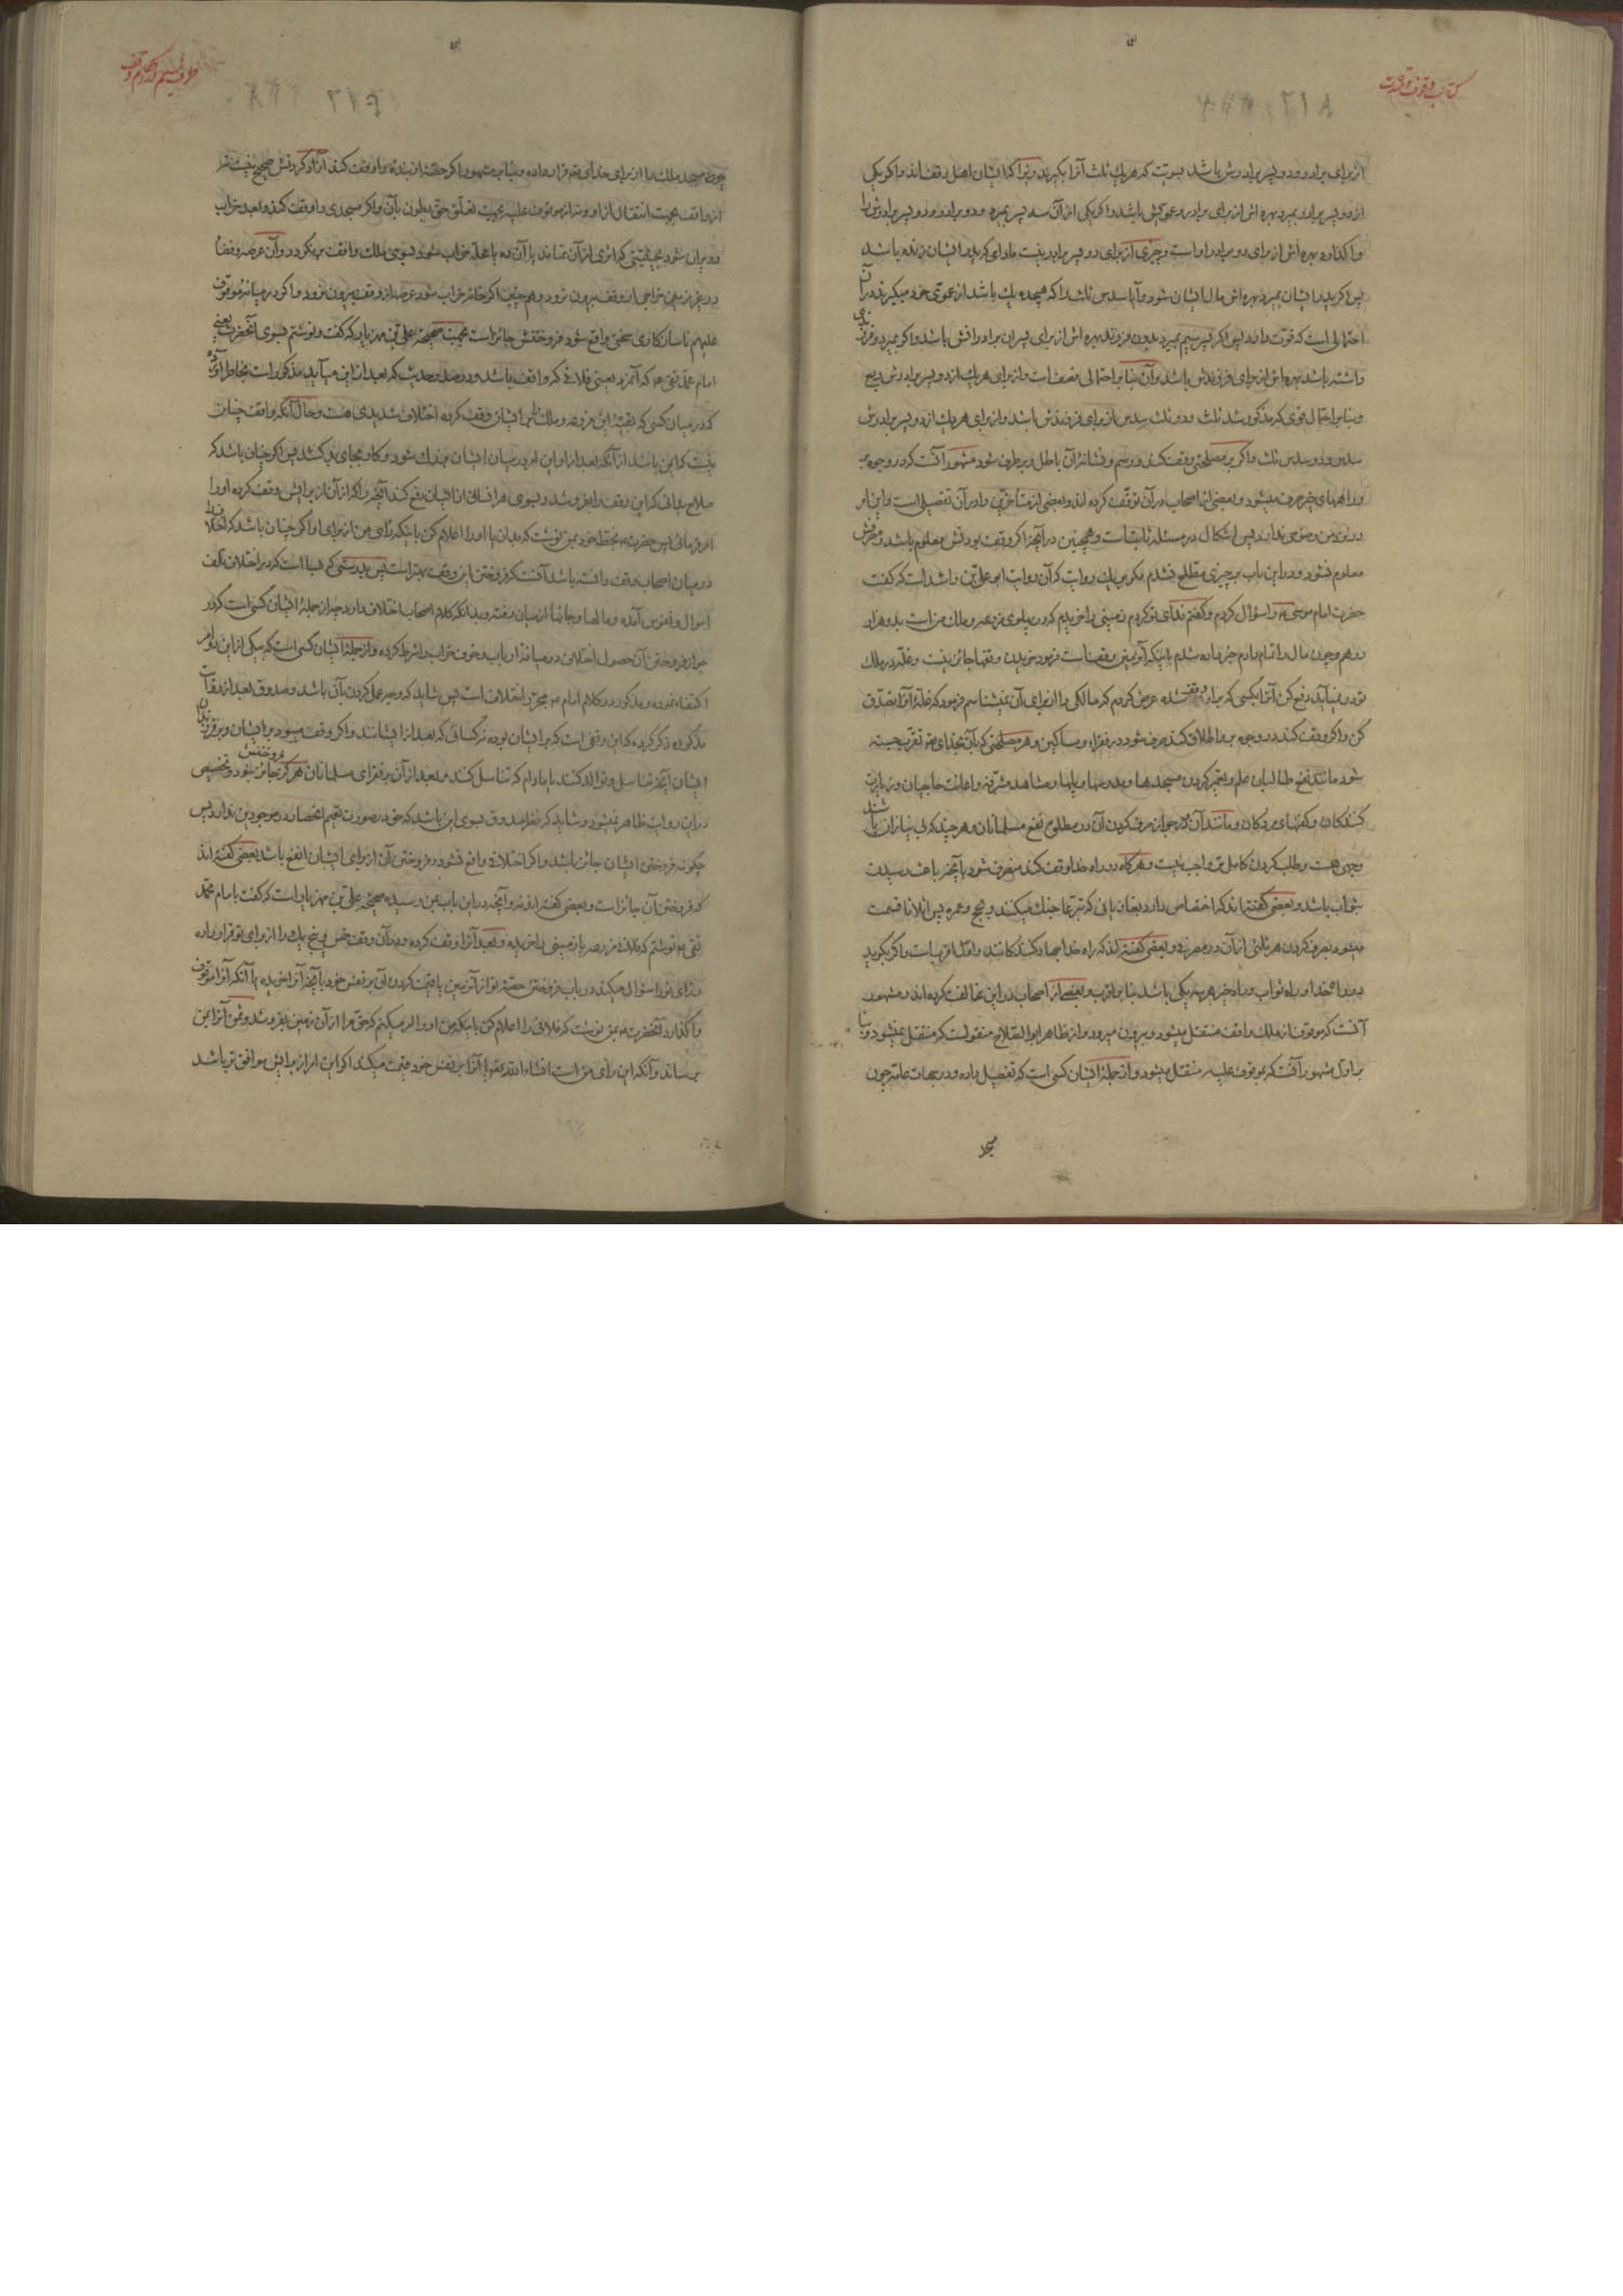 کتاب وقوف و صدقات
از برای برادر و دو پسر برادرش باشد بسویت که هر یک ثلث آنرا بگیرند زیرا که ایشان اهل وقف‌اند و اگر یکی
از دو پسر برادر بمیرد بهره اش از برای برادر و عمویش باشد و اگر یکی از آن سه پسر بمیرد و دو برادر و دو پسر برادرش را
واگذارد بهره اش از برای دو برادر او است و چیزی از برای دو پسر برادر نیست مادامی که پدر ایشان زنده باشد
پس اگر پدر ایشان بمیرد بهره اش مال ایشان شود و آیا سدس ثلث را که هیجده یک باشد از عموی خود میگیرند در آن
احتمالی است که قوت دارد پس اگر پسر سیم بمیرد بدون فرزند بهره اش از برای پسران برادرانش باشد و اگر بمیرد و فرزندی
داشته باشد بهره اش از برای فرزندش باشد و آن بنا بر احتمالی نصف است و از برای هر یک از دو پسر برادرش ربع
و بنا بر احتمال قوی که مذکور شد ثلث و دو ثلث سدس از برای فرزندش باشد و از برای هر یک از دو پسر برادرش
سدس و دو سدس ثلث و اگر بر مصلحتی وقف کند و رسم و نشانهٔ آن باطل و برطرف شود مشهور آنست که در وجوه بر
و راههای خیر صرف میشود و بعضی از اصحاب در آن توقف کرده اند و بعضی از متأخرین را در آن تفصیلی است و این امر
در نزد من وضوحی ندارد پس اشکال در مسئله ثابت است و همچنین در آنچه اگر وقف بودنش معلوم باشد و مصرفش
معلوم نشود و در این باب بر چیزی مطلع نشدم مگر بر یک روایت که آن روایت ابو علی بن راشد است که گفت
حضرت امام موسی ع را سؤال کردم و گفتم فدای تو گردم زمینی را خریدم که در پهلوی مزرعه و ملک من است بدو هزار
درهم و چون مال را تمام دادم خبر داده شدم باینکه آن زمین وقف است فرمود خریدن وقفها جائز نیست و غله در ملک
تو در نمیآید دفع کن آنرا بکسی که بر او وقف شده عرض کردم که مالکی را از برای آن نمیشناسم فرمود که غلهٔ آنرا تصدق
کن و اگر وقف کند در وجوه بر و اطلاق کند صرف شود در فقراء و مساکین و هر مصلحتی که بآن بخدای تع تقرب جسته
شود مانند نفع طالبان علم و تعمیر کردن مسجدها و مدرسها و پلها و مشاهد مشرفه و اعانت حاجیان و زیارت
کنندگان و کفنهای مردگان و مانند آن و در جواز صرف کردن آن در مطلق نفع مسلمانان و هر چند که بی نیازان باشند
وجهی هست و طلب کردن کامل‌تر واجب نیست و هرگاه در راه خدا وقف کند منصرف شود بآنچه باعث رسیدن
بثواب باشد و بعضی گفته اند که اختصاص دارد بغازیانی که تبرعا جنگ میکنند و بحج و عمره پس اثلاثا قسمت
میشود بصرف کردن هر ثلثی از آن در مصرفی و بعضی گفته اند که راه خدا جهاد کنندگانند و اول اقربست و اگر بگوید
در راه خدا و راه ثواب و راه خیر هر سه یکی باشد بنا بر اقرب و بعضی از اصحاب در این مخالفت کرده اند و مشهور
آنست که موقوف از ملک واقف منتقل میشود و بیرون میرود و از ظاهر ابو الصلاح منقولست که منتقل نمیشود و بنا
بر اول مشهور آنست که بموقوف علیه منتقل میشود و از جملهٔ ایشان کسی است که تفصیل داده و در جهات عامه چون
مسجد
چون مسجد ملک را از برای خدای تع قرار داده و بنا بر مشهور اگر حصهٔ از بنده را وقف کند آزاد کردنش صحیح نیست نه
از واقف بجهت انتقال از او و نه از موقوف علیه بجهت تعلق حق بطون بآن و اگر مسجدی را وقف کند و بعد خراب
و ویران شود بحیثیتی که اثری از آن نماند یا آن ده یا محله خراب شود بسوی ملک واقف برنگردد و آن عرصه و فضا
در غیر زمین خراجی از وقف بیرون نرود و هم چنین اگر خانه خراب شود عرصه از وقف بیرون نرود و اگر در میانهٔ موقوف
علیهم ناسازگاری سختی واقع شود فروختنش جائز است بجهت صحیحهٔ علی بن مهزیار که گفت و نوشتم بسوی آنحضرت یعنی
امام محمد تقی ع که آنمرد یعنی فلانی که واقف باشد و در صدر حدیث که بعد از این میآید مذکور است بخاطر آورده
که در میان کسی که بقیهٔ این مزرعه و ملک را بر ایشان وقف کرده اختلاف شدیدی هست و حال آنکه واقف چنان
نیست که ایمن باشد از آنکه بعد از او این امر در میان ایشان بزرگ شود و کار بجای بد کشد پس اگر چنان باشد که
صلاح بدانی که این وقف را بفروشد و بسوی هر انسانی از ایشان دفع کند آنچه را که از آن از برایش وقف کرده او را
امر فرمائی پس حضرت ع بخط خود بمن نوشت که بدان یا او را اعلام کن باینکه رأی من از برای او اگر چنان باشد که اختلاف را
در میان اصحاب وقف دانسته باشد آنست که فروختن این وقف بهتر است پس بدرستی که بسا است که در اختلاف تلف
اموال و نفوس آمده و مالها و جانها از میان رفته و بدانکه کلام اصحاب اختلاف دارد چه از جملهٔ ایشان کسی است که در
جواز فروختن آن حصول اختلاف در میانهٔ ارباب و خوف خراب را شرط کرده و از جملهٔ ایشان کسی است که بیکی از این دو امر
اکتفاء نموده و مذکور در کلام امام ع مجرد اختلاف است پس شاید که وجه عمل کردن بآن باشد و صدوق بعد از روایت
مذکوره ذکر کرده که این وقفی است که بر ایشان بوده نه کسانی که بعد از ایشانند و اگر وقف میبود بر ایشان و بر فرزندان
ایشان آنچه تناسل و توالد کنند یا مادام که تناسل کنند و بعد از آن بر فقرای مسلمانان هرگز فروختنش جائز نمیبود و تخصیص
در این روایت ظاهر نمیشود و شاید که نظر صدوق بسوی این باشد که حق در صورت تعمیم انحصار در موجودین ندارد پس
چگونه فروختن ایشان جائز باشد و اگر اختلاف واقع نشود و فروختن آن از برای ایشان انفع باشد بعضی گفته اند
که فروختن آن جائز است و بعضی گفته اند نه و آنچه در این باب بمن رسیده صحیحهٔ علی بن مهزیار است که گفت بامام محمد
تقی ع نوشتم که فلان مزرعه یا زمینی را خریده و بعد آنرا وقف کرده و در آن وقف خمس و پنج یک را از برای تو قرار داده
و رأی تو را سؤال میکند در باب فروختن حصهٔ تو از آن زمین یا قیمت کردن آن بر نفس خود بآنچه آنرا خریده یا آنکه آنرا موقوف
واگذارد آنحضرت ع بمن نوشت که فلانی را اعلام کن باینکه من او را امر میکنم که حق مرا از آن زمین بفروشد و ثمن آنرا بمن
برساند و آنکه این رأی من است انشاء الله تع یا آنرا بر نفس خود قیمت میکند اگر این امر از برایش موافق تر باشد